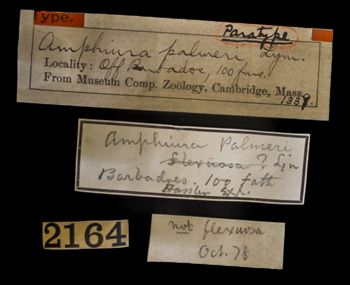 ype.
Paratype
Amphiura palmeri Lym.
Locality: Off Barbados, 100 fms.
From Museum Comp. Zoölogy, Cambridge, Mass.
1339.
Amphiura Palmeri
flexuosa ? Ljn
Barbados, 100 fath
Hassler Ex.
2164
not flexuosa
Oct. 78